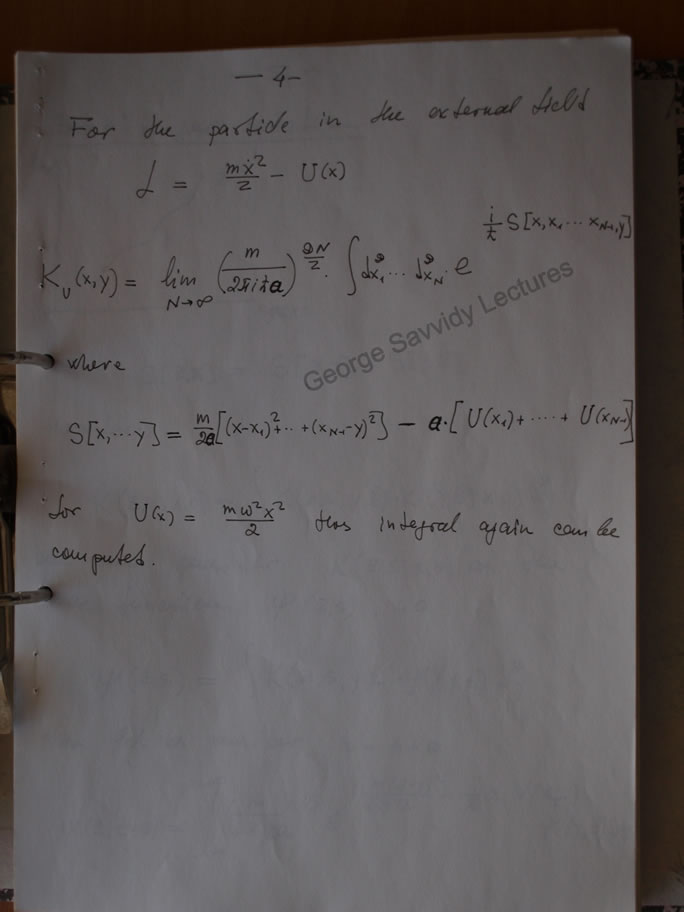 — 4 —
For the particle in the external field
L = mẋ²/2 − U(x)
K_U(x,y) = lim_{N→∞} (m/2πiħa)^{DN/2} · ∫ d^D x₁ ··· d^D x_N · e^{i/ħ S[x,x₁···x_{N-1},y]}
George Savvidy Lectures
where
S[x,···y] = m/2a [(x-x₁)²+··+(x_{N-1}-y)²] − a·[U(x₁)+····+U(x_{N-1})]
for U(x) = mω²x²/2 this integral again can be
computed.